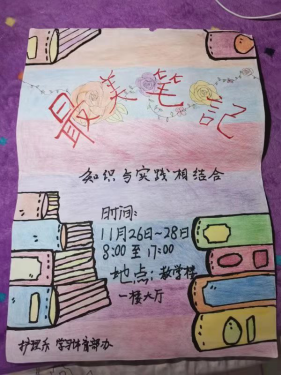 最美笔記
知识与实践相结合
时间:
11月26日~28日
8:00 至 17:00
地点: 教学楼
一楼大厅
护理系 学习体育部办